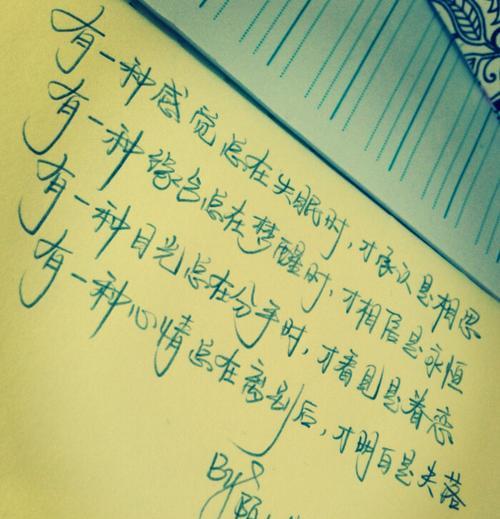 有一种感觉总在失眠时，才承认是相思
有一种缘份总在梦醒时，才相信是永恒
有一种目光总在分手时，才看见是眷恋
有一种心情总在离别后，才明白是失落
By